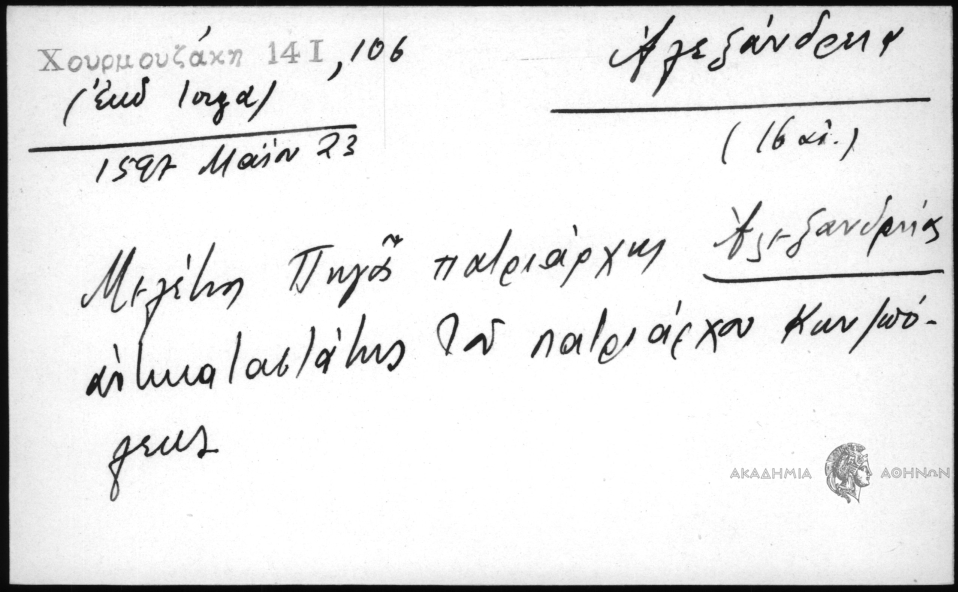 Χουρμουζάκη 14 I, 106
(ἔκδ Ιοργα)
1597 Μαΐου 23
Ἀλεξάνδρεια
(16 αἰ.)
Μελέτιος Πηγᾶς πατριάρχης Ἀλεξανδρείας
ἀντικαταστάτης τοῦ πατριάρχου Κων/πό-
λεως
ΑΚΑΔΗΜΙΑ ΑΘΗΝΩΝ